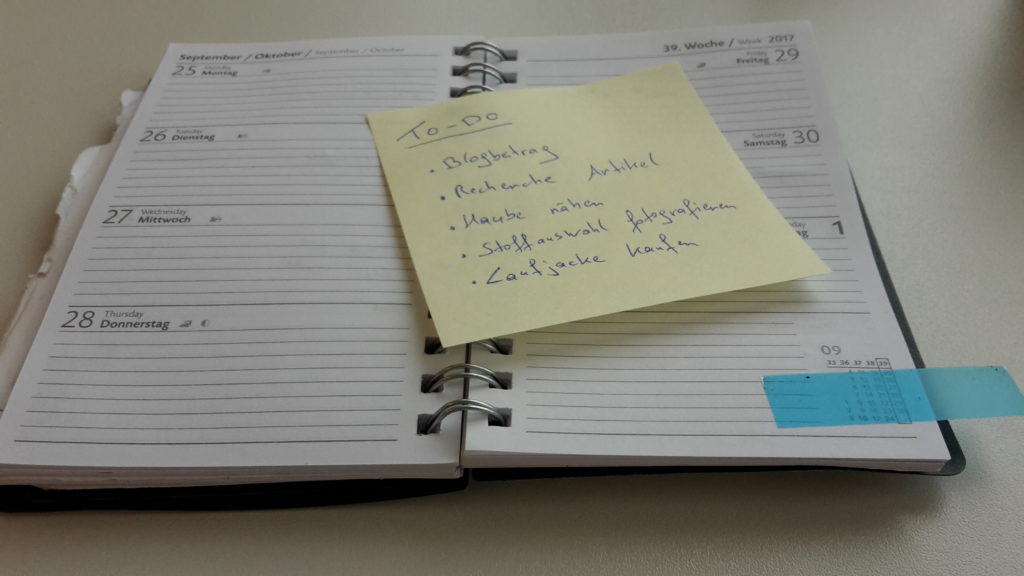 September / Oktober / September / October
25 Monday
Montag
26 Tuesday
Dienstag
27 Wednesday
Mittwoch
28 Thursday
Donnerstag
39. Woche / Week 2017
Friday 29
Freitag
Saturday 30
Samstag
1
To-Do
• Blogbeitrag
• Recherche Artikel
• Haube nähen
• Stoffauswahl fotografieren
• Laufjacke kaufen
09
35 36 37 38 39